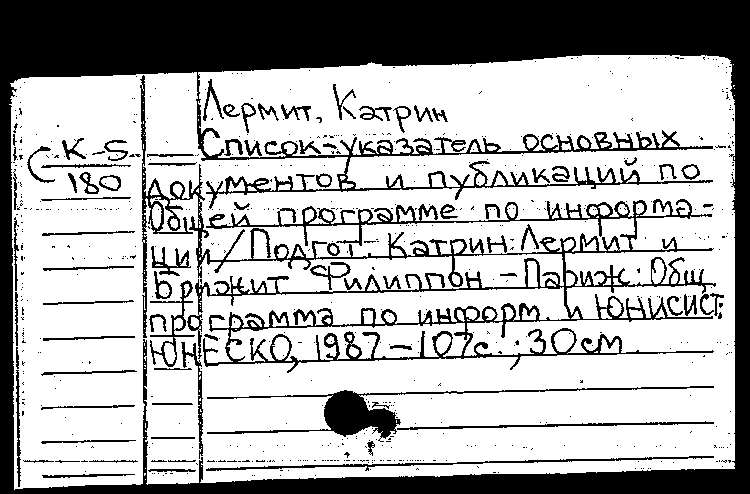 Лермит, Катрин
К-S
Список-указатель основных
180
документов и публикаций по
Общей программе по информа-
ции/Подгот: Катрин Лермит и
Брижит Филиппон - Париж: Общ
программа по информ. и ЮНИСИСТ:
ЮНЕСКО, 1987 - 107с.; 30см